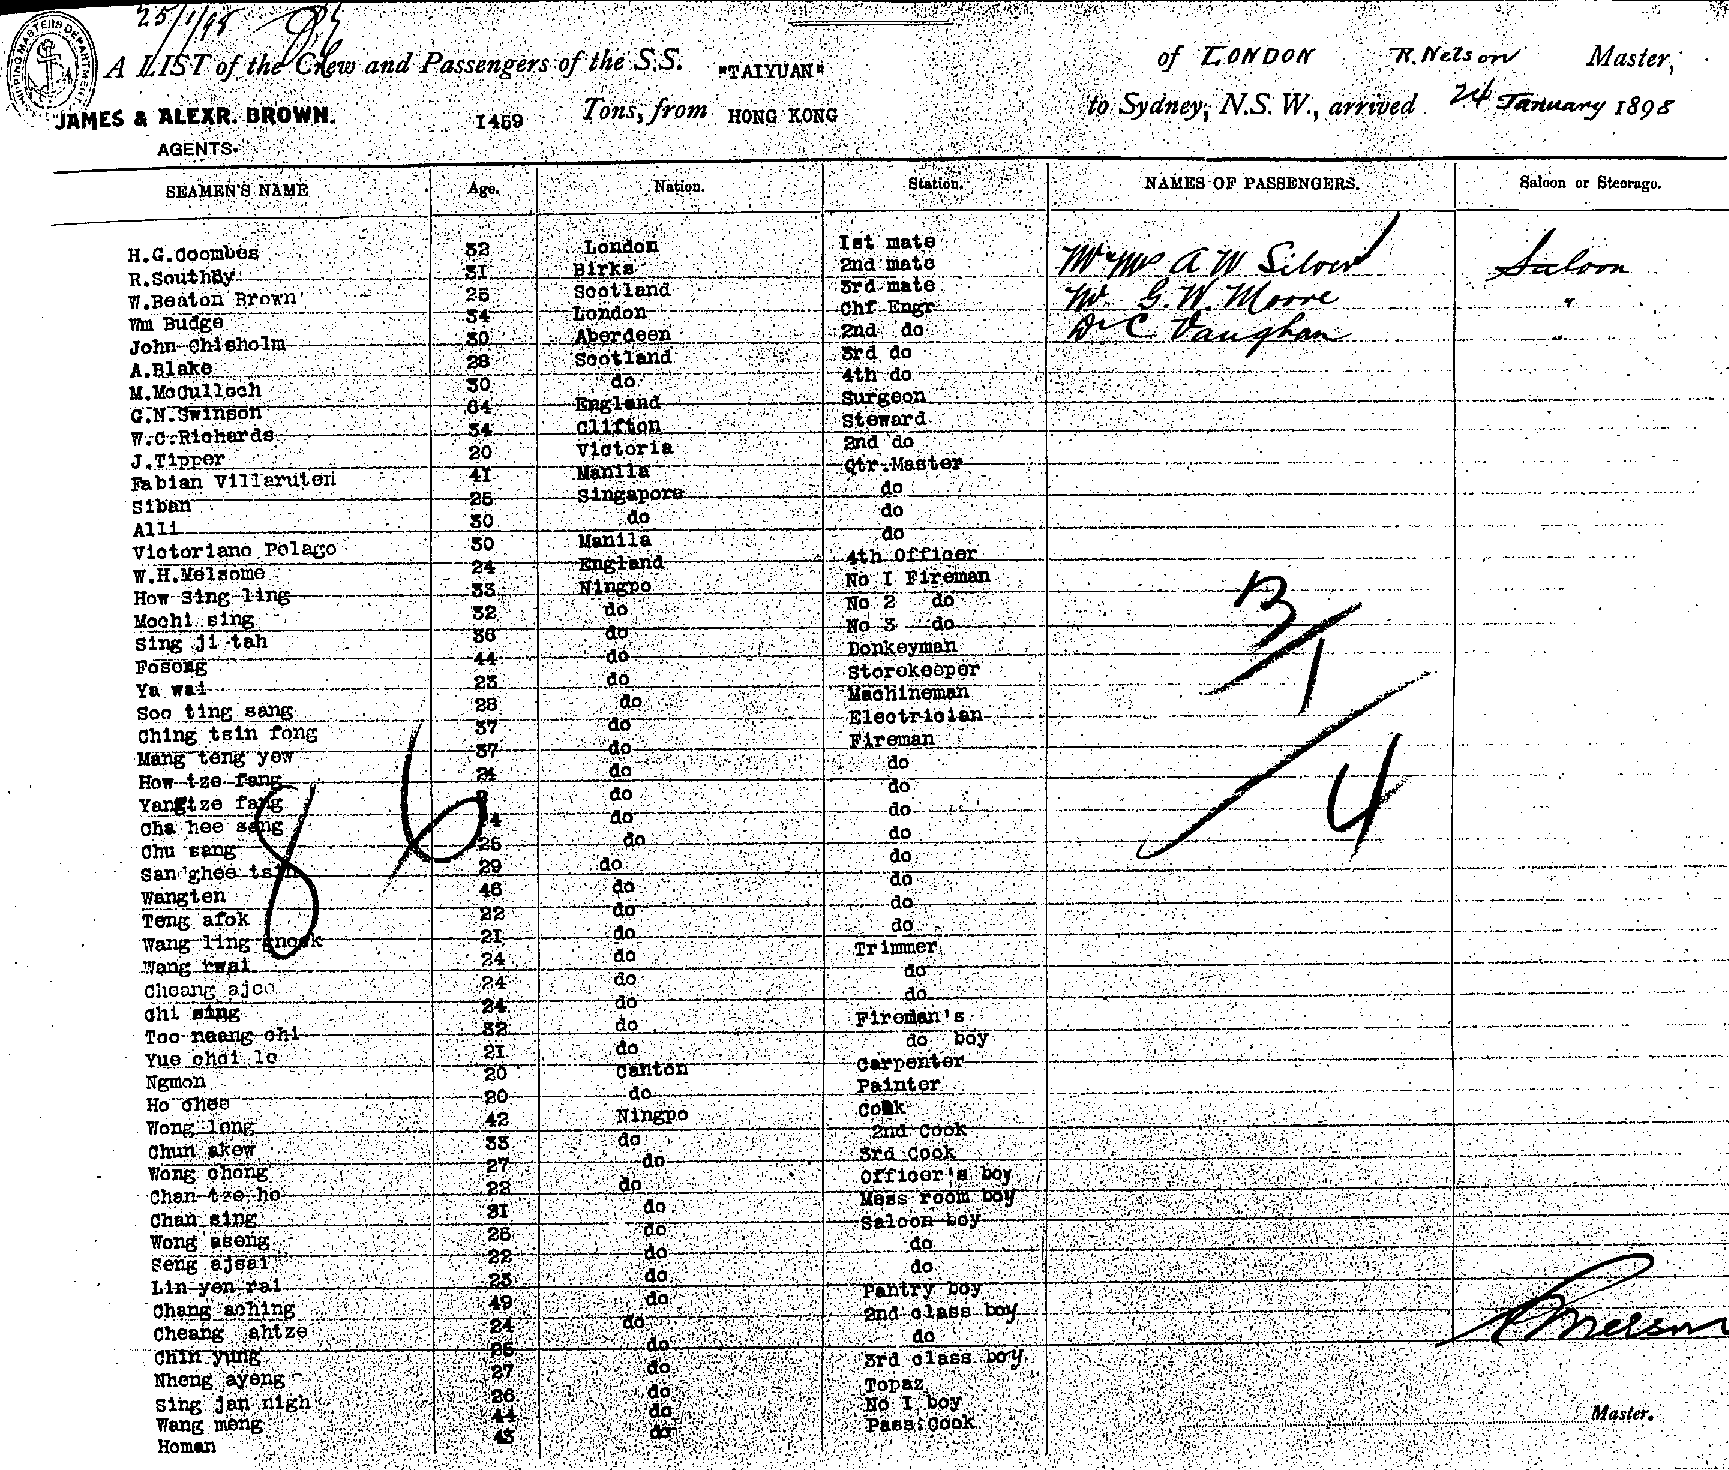 25/1/98
A LIST of the Crew and Passengers of the S.S. "TAIYUAN" of LONDON R. Nelson Master,
JAMES & ALEXR. BROWN. 1459 Tons, from HONG KONG to Sydney, N.S.W., arrived 24 January 1898
AGENTS.
SEAMEN'S NAME Age. Nation. Station. NAMES OF PASSENGERS. Saloon or Steerage.
H.G.Coombes 32 London 1st mate Mr & Mrs A W Silver Saloon
R.Southby 31 Birks 2nd mate
W.Beaton Brown 25 Scotland 3rd mate Mr G.W. Moore "
Wm Budge 34 London Chf Engr
John Chisholm 30 Aberdeen 2nd do Dr C Vaughan "
A.Blake 28 Scotland 3rd do
M.McCulloch 30 do 4th do
G.N.Swinson 64 England Surgeon
W.C.Richards 34 Clifton Steward
J.Tipper 20 Victoria 2nd do
Fabian Villaruten 41 Manila Qtr.Master
Siban 25 Singapore do
Alli 30 do do
Victoriano Polago 30 Manila do
W.H.Melsome 24 England 4th Officer
How sing ling 33 Ningpo No I Fireman
Mochi sing 32 do No 2 do
Sing ji tah 36 do No 3 do
Fosong 44 do Donkeyman
Ya wai 23 do Storekeeper
Soo ting sang 28 do Machineman
Ching tsin fong 37 do Electrician
Mang teng yew 37 do Fireman
How tze fang 24 do do
Yangtze fang do do
Cha hee sang do do
Chu sang 26 do do
San ghee tsin 29 do do
Wangten 46 do do
Teng afok 22 do do
Wang ling 21 do do
Wang rwai 24 do Trimmer
Cheang ajoo 24 do do
Chi sing 24 do do
Too neang chi 32 do Fireman's
Yue choi lo 21 do do boy
Ngmon 20 Canton Carpenter
Ho chee 20 do Painter
Wong long 42 Ningpo Cook
Chun akew 33 do 2nd Cook
Wong chong 27 do 3rd Cook
Chan tze ho 22 do Officer's boy
Chan sing 31 do Mess room boy
Wong aseng 28 do Saloon boy
Seng ajsai 22 do do
Lin yen rai 23 do do
Chang aching 49 do Pantry boy
Cheang ahtze 24 do 2nd class boy
Chin yung 26 do do
Nheng ayeng 27 do 3rd class boy
Sing jan nigh 26 do Topaz
Wang meng 44 do No I boy
Homan 43 do Pass.Cook
86
3/1
/4
Master.